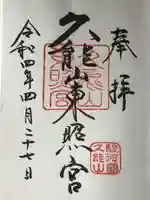 奉拝
久能山東照宮
令和四年四月二十七日
駿河國
久能山